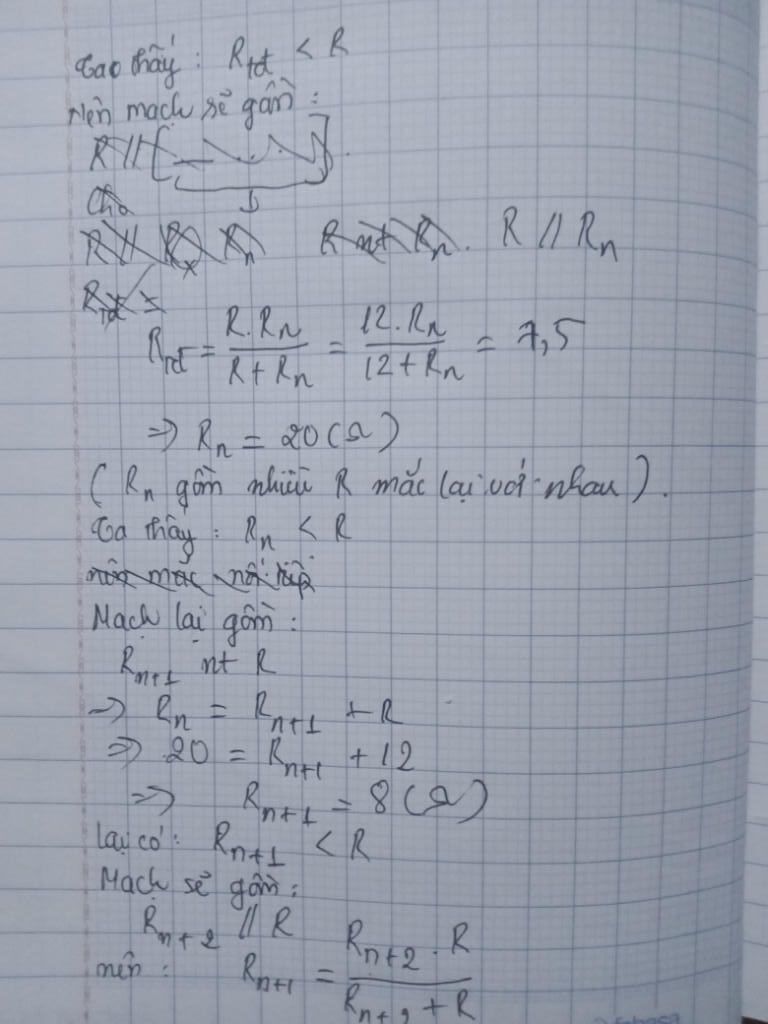 Tao thấy : Rtđ < R
Nên mạch sẽ gồm :
R // [
Cho
R // Rx Rn R nt Rn. R // Rn
Rtđ =
Rtđ = R.Rn / R + Rn = 12.Rn / 12 + Rn = 7,5
=> Rn = 20 (Ω)
( Rn gồm nhiều R mắc lại với nhau ).
Ta thấy : Rn < R
nên mắc nối tiếp
Mạch lại gồm :
Rn+1 nt R
-> Rn = Rn+1 + R
=> 20 = Rn+1 + 12
=> Rn+1 = 8 (Ω)
lại có : Rn+1 < R
Mạch sẽ gồm :
Rn+2 // R
nên : Rn+1 = Rn+2 . R / Rn+2 + R